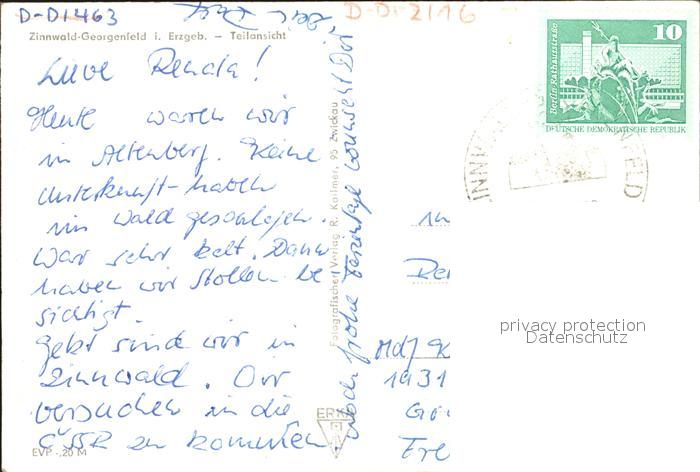 D-D1463
D-D1-2116
Zinnwald-Georgenfeld i. Erzgeb. – Teilansicht
Liebe Renata!
Heute waren wir
in Altenberg. Keine
Unterkunft – haben
im Wald geschlafen.
War sehr kalt. Dann
haben wir Stollen be
sichtigt.
Jetzt sind wir in
Zinnwald. Wir
versuchen in die
ČSSR zu kommen.
EVP -,20 M
noch frohe Feiertage wünscht Dir
Fotografischer Verlag R. Kallmer, 95 Zwickau
ERKA
Berlin Rathausstraße
10
DEUTSCHE DEMOKRATISCHE REPUBLIK
1931
privacy protection
Datenschutz